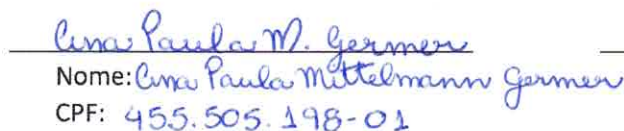 Ana Paula M. Germer
Nome: Ana Paula Mittelmann Germer
CPF: 455.505.198-01